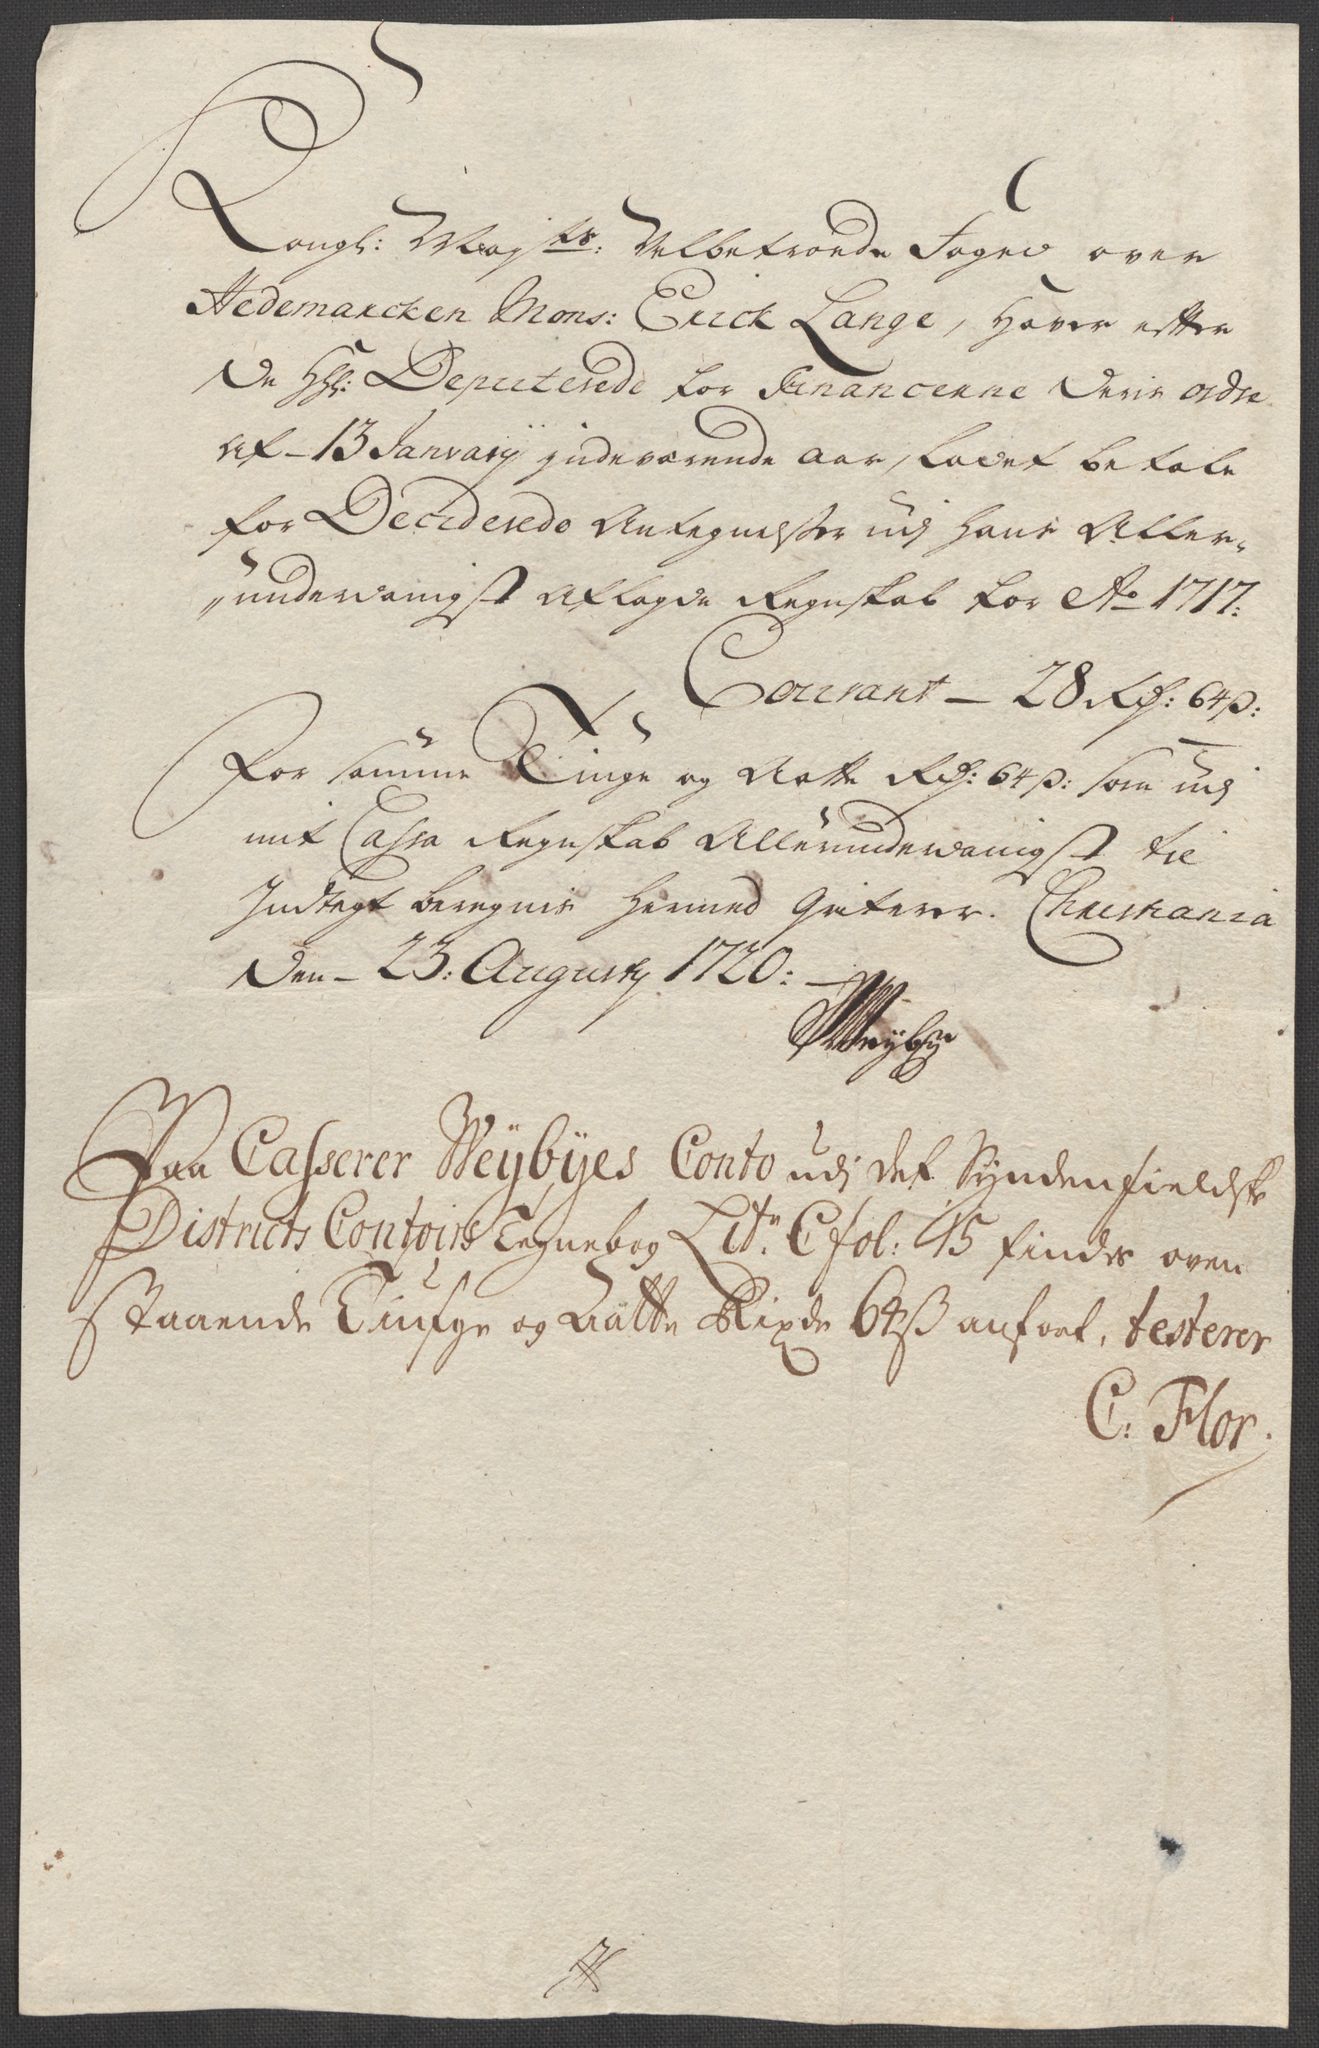 Kongl: Mayts: Velbetroede Foged over
Hedemarcken Mons: Erick Lange, Haver efter
De HHr: Deputerede for Financerne deris ordre
af - 13 Janvarij indeværende aar, ladet betale
for Deciderede Antegnelser udj hans Aller-
„underdanigst aflagde Regnskab for Ao 1717:
Courant - 28 Rd: 64 ß:
For samme Tiuge og Aatte Rd: 64 ß: som udj
mit Cassa Regnskab Allerunderdanigst til
Indtegt beregnis hermed qviterer. Christiania
den - 23: Augustj 1720:
Weybye
Paa Casserer Weÿbÿes Conto udj det Syndenfieldske
Districts Contoirs Tegnebog Litr. C fol: 45 findes oven
staaende Tiufge og Aatte Rixdr 64 ß anført, testerer
C: Flor.